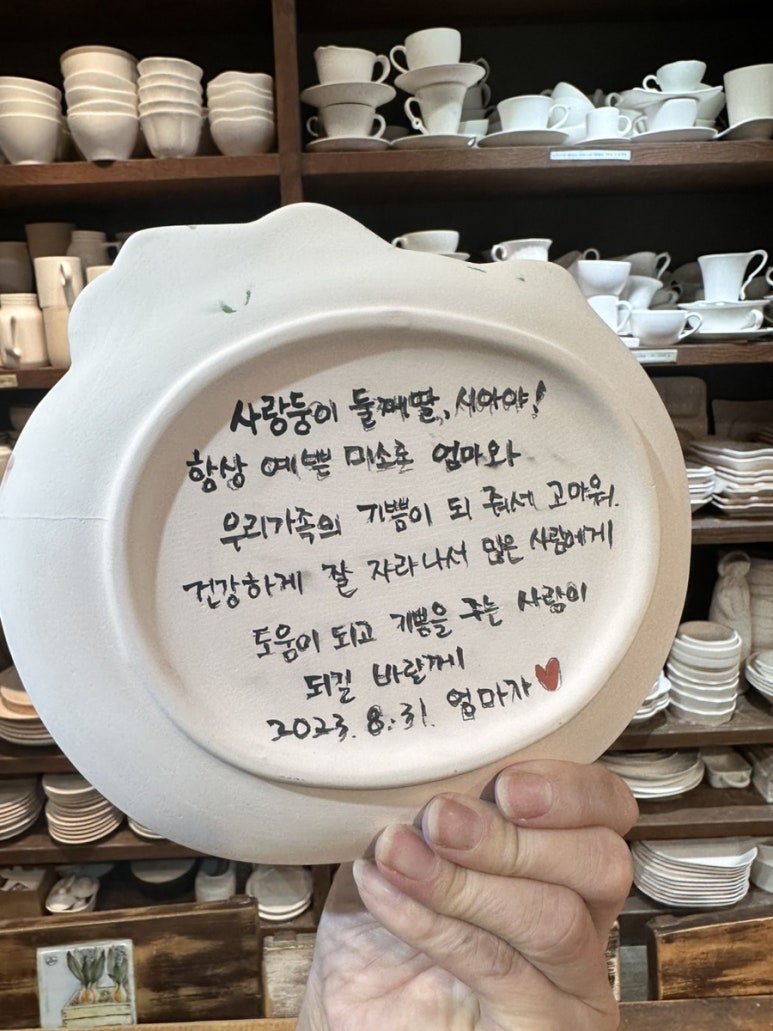 사랑둥이 둘째딸, 시아야!
항상 예쁜 미소로 엄마와
우리가족의 기쁨이 되 줘서 고마워.
건강하게 잘 자라나서 많은 사람에게
도움이 되고 기쁨을 주는 사람이
되길 바랄께
2023. 8. 31. 엄마가